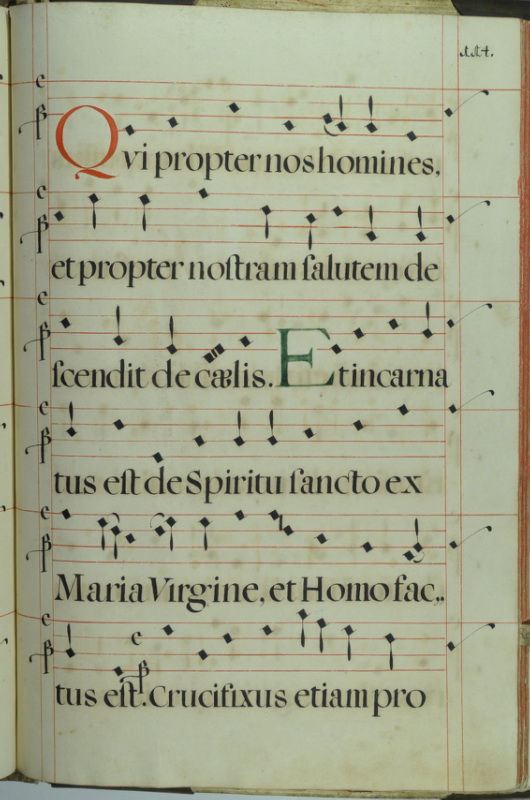 114.
Qvi propter nos homines,
et propter nostram salutem de
scendit de cælis. Et incarna
tus est de Spiritu sancto ex
Maria Virgine, et Homo fac„
tus est. Crucifixus etiam pro